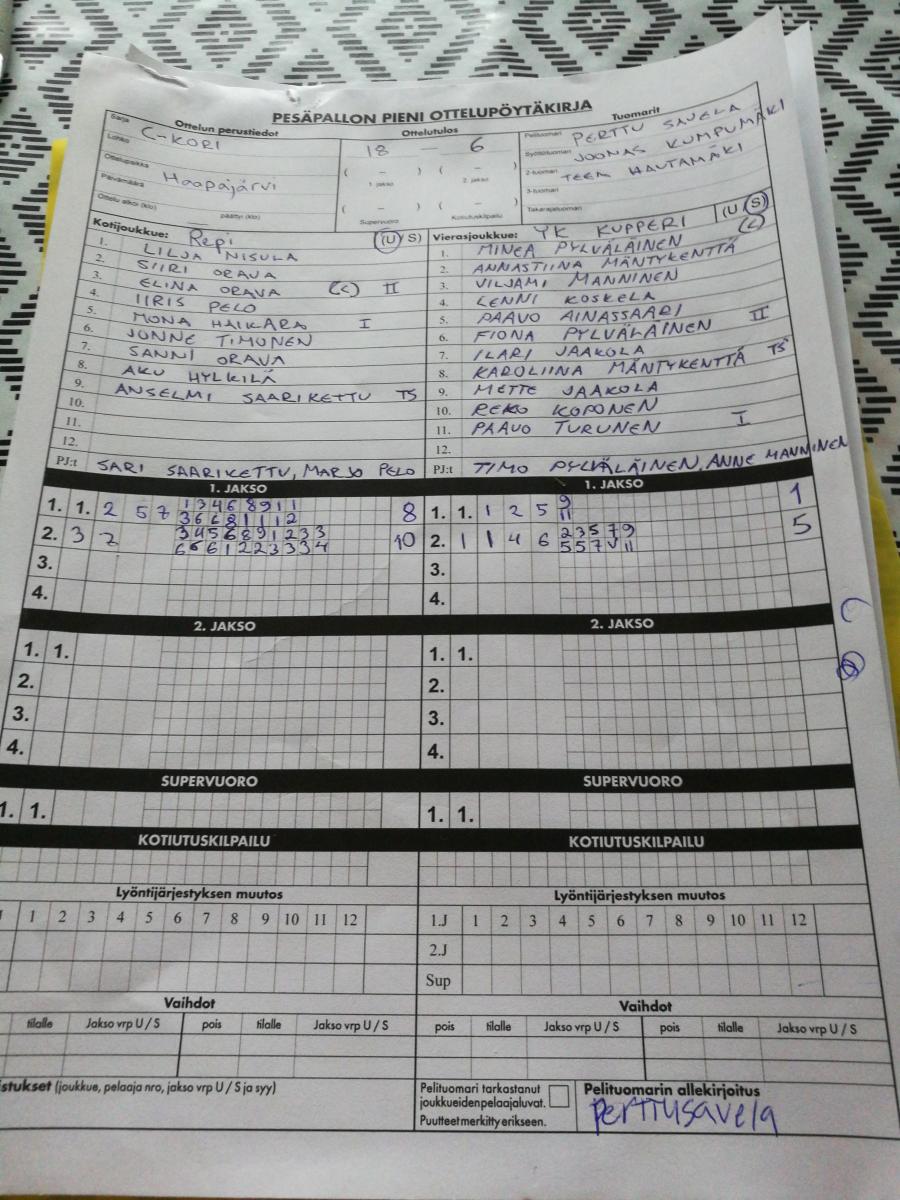 PESÄPALLON PIENI OTTELUPÖYTÄKIRJA
Ottelun perustiedot
Ottelutulos
Tuomarit
Sarja
Lohko C-KORI
Ottelupaikka
Päivämäärä Haapajärvi
Ottelu alkoi (klo) päättyi (klo)
18 – 6
( – ) ( – )
1. jakso 2. jakso
( – ) ( – )
Supervuoro Kotiutuskilpailu
Pelituomari PERTTU SAVELA
Syöttötuomari JOONAS KUMPUMÄKI
2-tuomari TEEA HAUTAMÄKI
3-tuomari
Takarajatuomari
Kotijoukkue: Repi (U/S)
1. LILJA NISULA
2. SIIRI ORAVA
3. ELINA ORAVA (C) II
4. IIRIS PELO
5. MONA HAIKARA I
6. JONNE TIMONEN
7. SANNI ORAVA
8. AKU HYLKILÄ
9. ANSELMI SAARIKETTU TS
10.
11.
12.
PJ:t SARI SAARIKETTU, MARJO PELO
Vierasjoukkue: YK KUPPERI (U/S)
1. MINEA PYLVÄLÄINEN (C)
2. ANNASTIINA MÄNTYKENTTÄ
3. VILJAMI MANNINEN
4. LENNI KOSKELA
5. PAAVO AINASSAARI
6. FIONA PYLVÄLÄINEN II
7. ILARI JAAKOLA
8. KAROLIINA MÄNTYKENTTÄ TS
9. METTE JAAKOLA
10. REKO KOPONEN
11. PAAVO TURUNEN I
12.
PJ:t TIMO PYLVÄLÄINEN, ANNE MANNINEN
1. JAKSO
1. 1. 2 5 7 1 3 4 6 8 9 1 1 8
3 6 6 8 1 1 1 2
2. 3 2 3 4 5 6 8 9 1 2 3 3 10
6 6 6 1 2 2 3 3 3 4
3.
4.
1. JAKSO
1. 1. 1 2 5 9 1
11
2. 1 1 4 6 2 3 5 7 9 5
5 5 7 11
3.
4.
2. JAKSO
1. 1.
2.
3.
4.
2. JAKSO
1. 1.
2.
3.
4.
SUPERVUORO
1. 1.
SUPERVUORO
1. 1.
KOTIUTUSKILPAILU
KOTIUTUSKILPAILU
Lyöntijärjestyksen muutos
1 2 3 4 5 6 7 8 9 10 11 12
Lyöntijärjestyksen muutos
1.J 1 2 3 4 5 6 7 8 9 10 11 12
2.J
Sup
Vaihdot
tilalle Jakso vrp U / S pois tilalle Jakso vrp U / S
Vaihdot
pois tilalle Jakso vrp U / S pois tilalle Jakso vrp U / S
istukset (joukkue, pelaaja nro, jakso vrp U / S ja syy)
Pelituomari tarkastanut
joukkueiden pelaajaluvat.
Puutteet merkitty erikseen.
Pelituomarin allekirjoitus
perttusavela